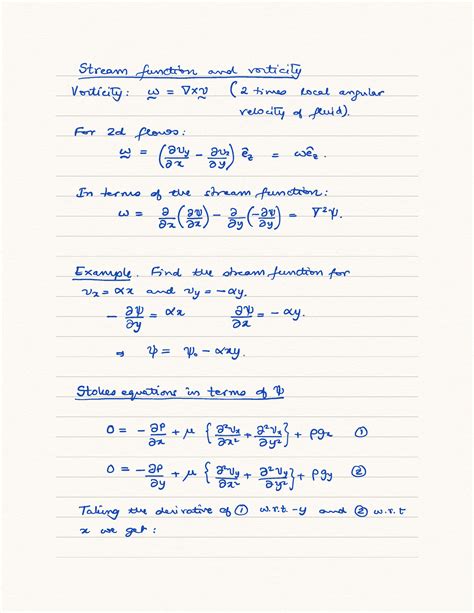 Stream function and vorticity
Vorticity: ω = ∇×v (2 times local angular
velocity of fluid).
For 2d flows:
ω = (∂v_y/∂x − ∂v_x/∂y) ê_z = ω ê_z.
In terms of the stream function:
ω = ∂/∂x (∂ψ/∂x) − ∂/∂y (−∂ψ/∂y) = ∇²ψ.
Example. Find the stream function for
v_x = αx and v_y = −αy.
− ∂ψ/∂y = αx ∂ψ/∂x = − αy.
⇒ ψ = ψ₀ − αxy.
Stokes equations in terms of ψ
0 = − ∂p/∂x + μ {∂²v_x/∂x² + ∂²v_x/∂y²} + ρg_x ①
0 = − ∂p/∂y + μ {∂²v_y/∂x² + ∂²v_y/∂y²} + ρg_y ②
Taking the derivative of ① w.r.t-y and ② w.r.t
x we get: